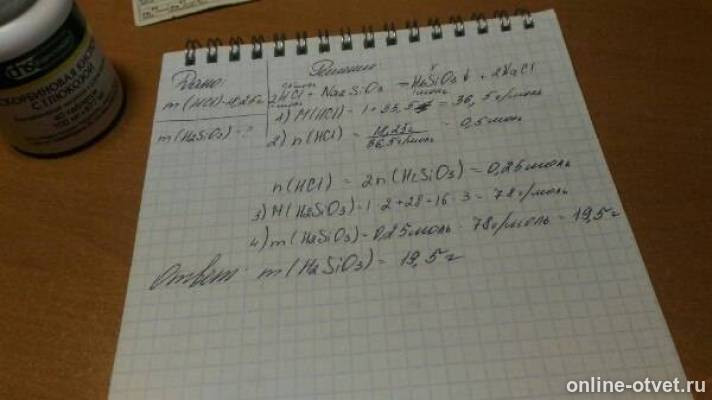 АСКОРБИНОВАЯ КИСЛОТА
С ГЛЮКОЗОЙ
Дано: Решение
m(HCl)=18,25г 2HCl + Na2SiO3 → H2SiO3↓ + 2NaCl
1моль
m(H2SiO3)-? 1) M(HCl) = 1+35,5 = 36,5г/моль
2) n(HCl) = 18,25г / 36,5г/моль = 0,5моль
n(HCl) = 2n(H2SiO3) = 0,25моль
3) M(H2SiO3)=1·2+28+16·3=78г/моль
4) m(H2SiO3)=0,25моль·78г/моль=19,5г
Ответ: m(H2SiO3)=19,5г
online-otvet.ru